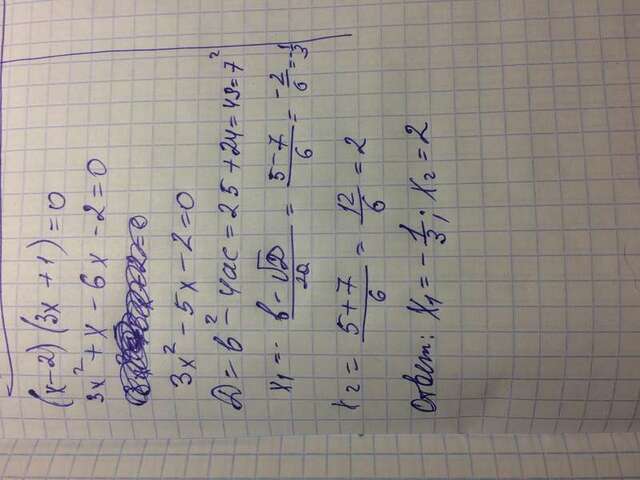 (x-2)(3x+1)=0
3x²+x-6x-2=0
3x²-5x-2=0
Д=в²-4ac=25+24=49=7²
x₁=-в-√D/2a=5-7/6=-2/6=-1/3
x₂=5+7/6=12/6=2
Ответ: x₁=-1/3; x₂=2